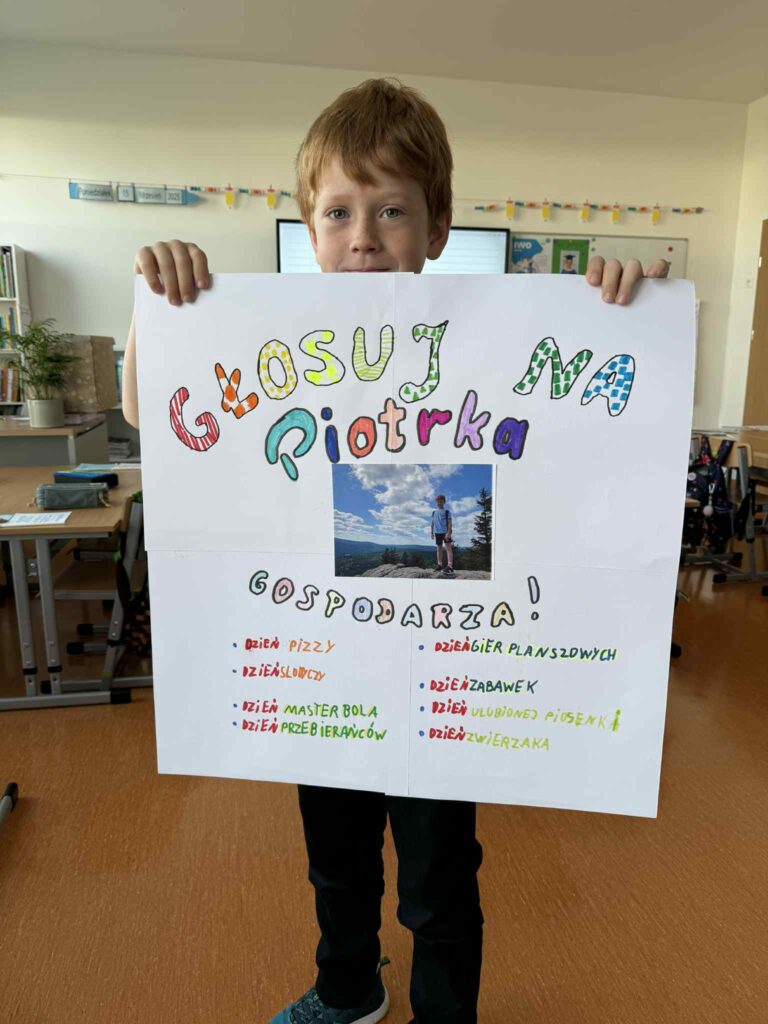 Poniedziałek 15 Wrzesień 2025
GŁOSUJ NA
Piotrka
GOSPODARZA!
• DZIEŃ PIZZY
• DZIEŃ SŁODYCZY
• DZIEŃ MASTER BOLA
• DZIEŃ PRZEBIERAŃCÓW
• DZIEŃ GIER PLANSZOWYCH
• DZIEŃ ZABAWEK
• DZIEŃ ULUBIONEJ PIOSENKI
• DZIEŃ ZWIERZAKA